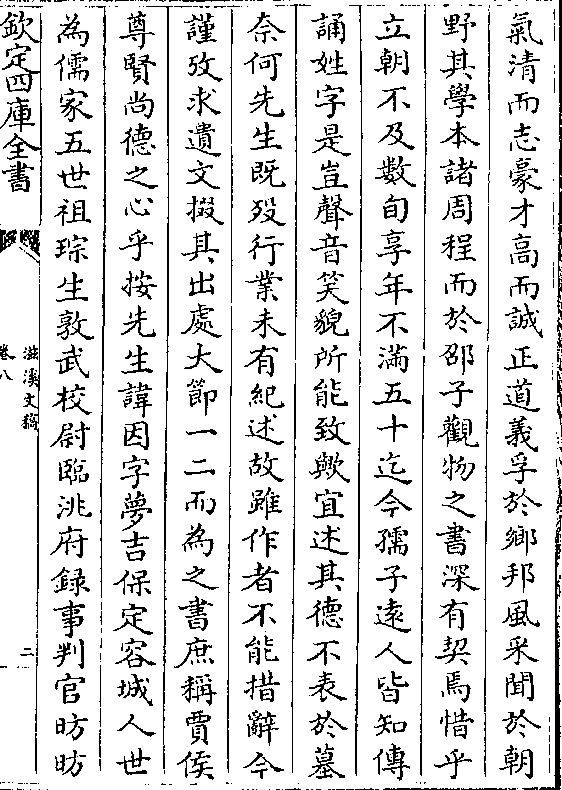 氣清而志豪才高而誠正道義孚於鄉邦風采聞於朝
野其學本諸周程而於邵子觀物之書深有契焉惜乎
立朝不及數旬享年不滿五十迄今孺子逺人皆知傳
誦姓字是豈聲音笑貌所能致歟宜述其德不表於墓
奈何先生既歿行業未有紀述故雖作者不能措辭今
謹攷求遺文掇其出處大節一二而為之書庶稱賈侯
尊賢尚德之心乎按先生諱因字夢吉保定容城人世
為儒家五世祖琮生敦武校尉臨洮府録事判官昉昉
欽定四庫全書
滋溪文稿
卷八
二